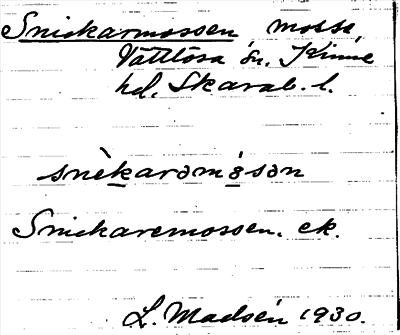 Snickarmossen, mosse,
Vättlösa sn. Kinne
hd. Skarab. l.
snèkarəmåsən
Snickaremossen. ek.
L. Madsén 1930.